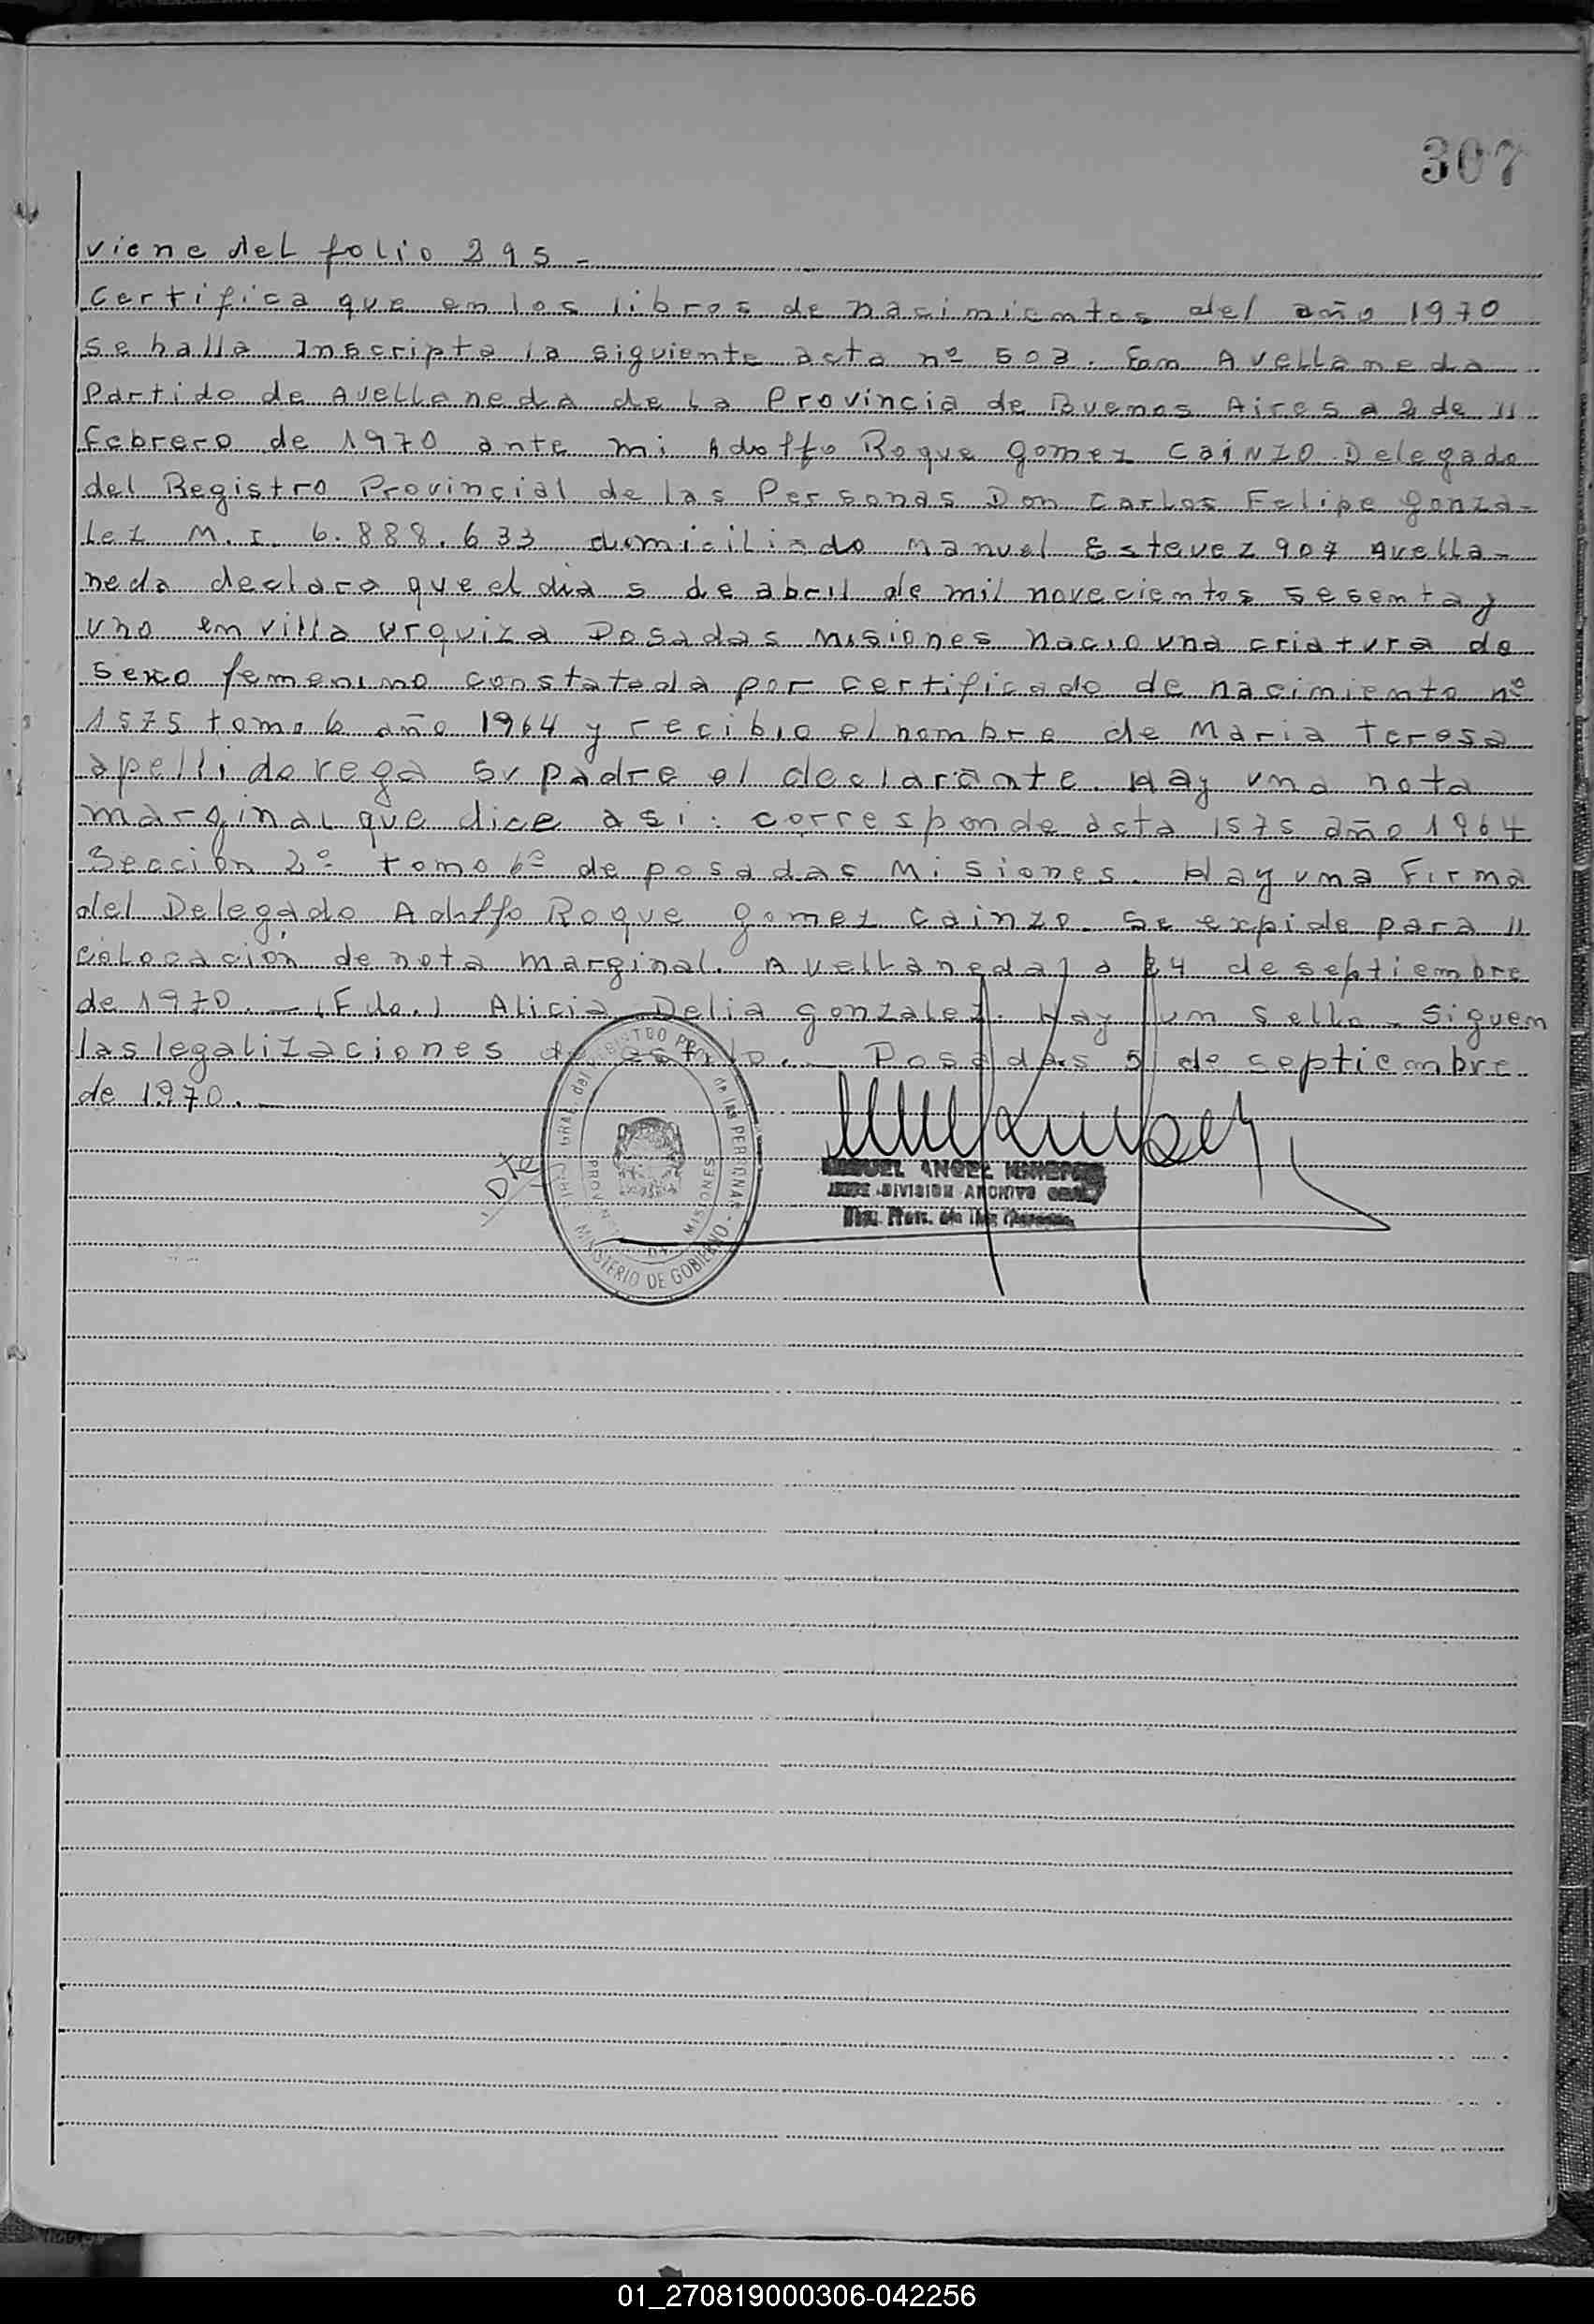 307
viene del folio 295 -
Certifica que en los libros de nacimientos del año 1970
se halla Inscripta la siguiente acta nº 503. En Avellaneda
Partido de Avellaneda de la Provincia de Buenos Aires a 2 de "
febrero de 1970 ante mi Adolfo Roque Gomez CAINZO Delegado
del Registro Provincial de las Personas Don Carlos Felipe Gonza-
lez M. I. 6.888.633 domiciliado Manuel Estevez 907 Avella-
neda declara que el dia 5 de abril de mil novecientos sesenta y
uno en villa urquiza Posadas Misiones nacio una criatura de
sexo femenino constatada por certificado de nacimiento nº
1575 tomo 6 año 1964 y recibio el nombre de Maria Teresa
apellido rega su padre el declarante. Hay una nota
marginal que dice asi: corresponde acta 1575 año 1964
Seccion 2º tomo 6º de posadas Misiones. Hay una Firma
del Delegado Adolfo Roque Gomez Cainzo. Se expide para "
colocación de nota marginal. Avellaneda, a 24 de septiembre
de 1970. — (Fdo.) Alicia Delia Gonzalez. Hay un sello. Siguen
las legalizaciones de estilo. — Posadas 5 de septiembre
de 1970. —
GRAL. del REGISTRO PROV. de las PERSONAS
PROVINCIA DE MISIONES
MINISTERIO DE GOBIERNO
MIGUEL ANGEL
JEFE DIVISION ARCHIVO GRAL.
01_270819000306-042256